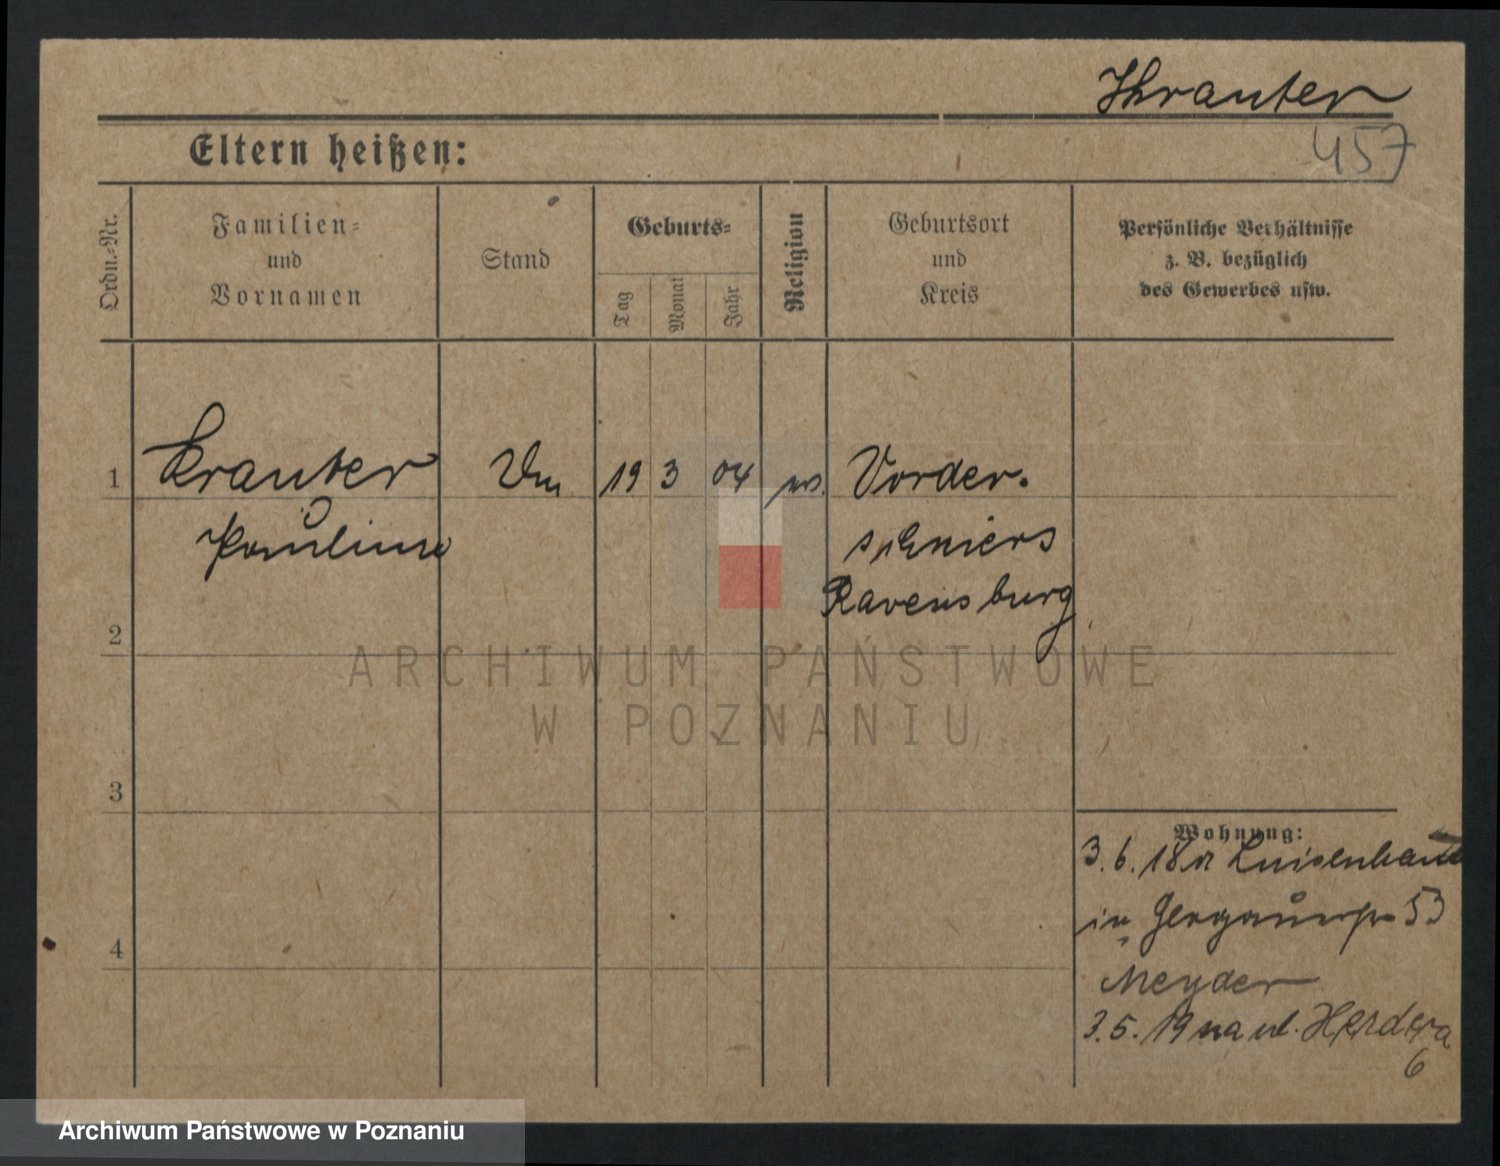 Krauter
457
Eltern heißen:
Ordn.-Nr.
Familien-
und
Vornamen
Stand
Geburts-
Tag
Monat
Jahr
Religion
Geburtsort
und
Kreis
Persönliche Verhältnisse
z. B. bezüglich
des Gewerbes usw.
1
Krauter
19
3
04
Vorder.
Pauline
Ravensburg
2
ARCHIWUM PAŃSTWOWE
W POZNANIU
3
Wohnung:
3.6.18 Luisenhain
53
4
Meyder
3.5.19 na ul. Herdera
6
Archiwum Państwowe w Poznaniu